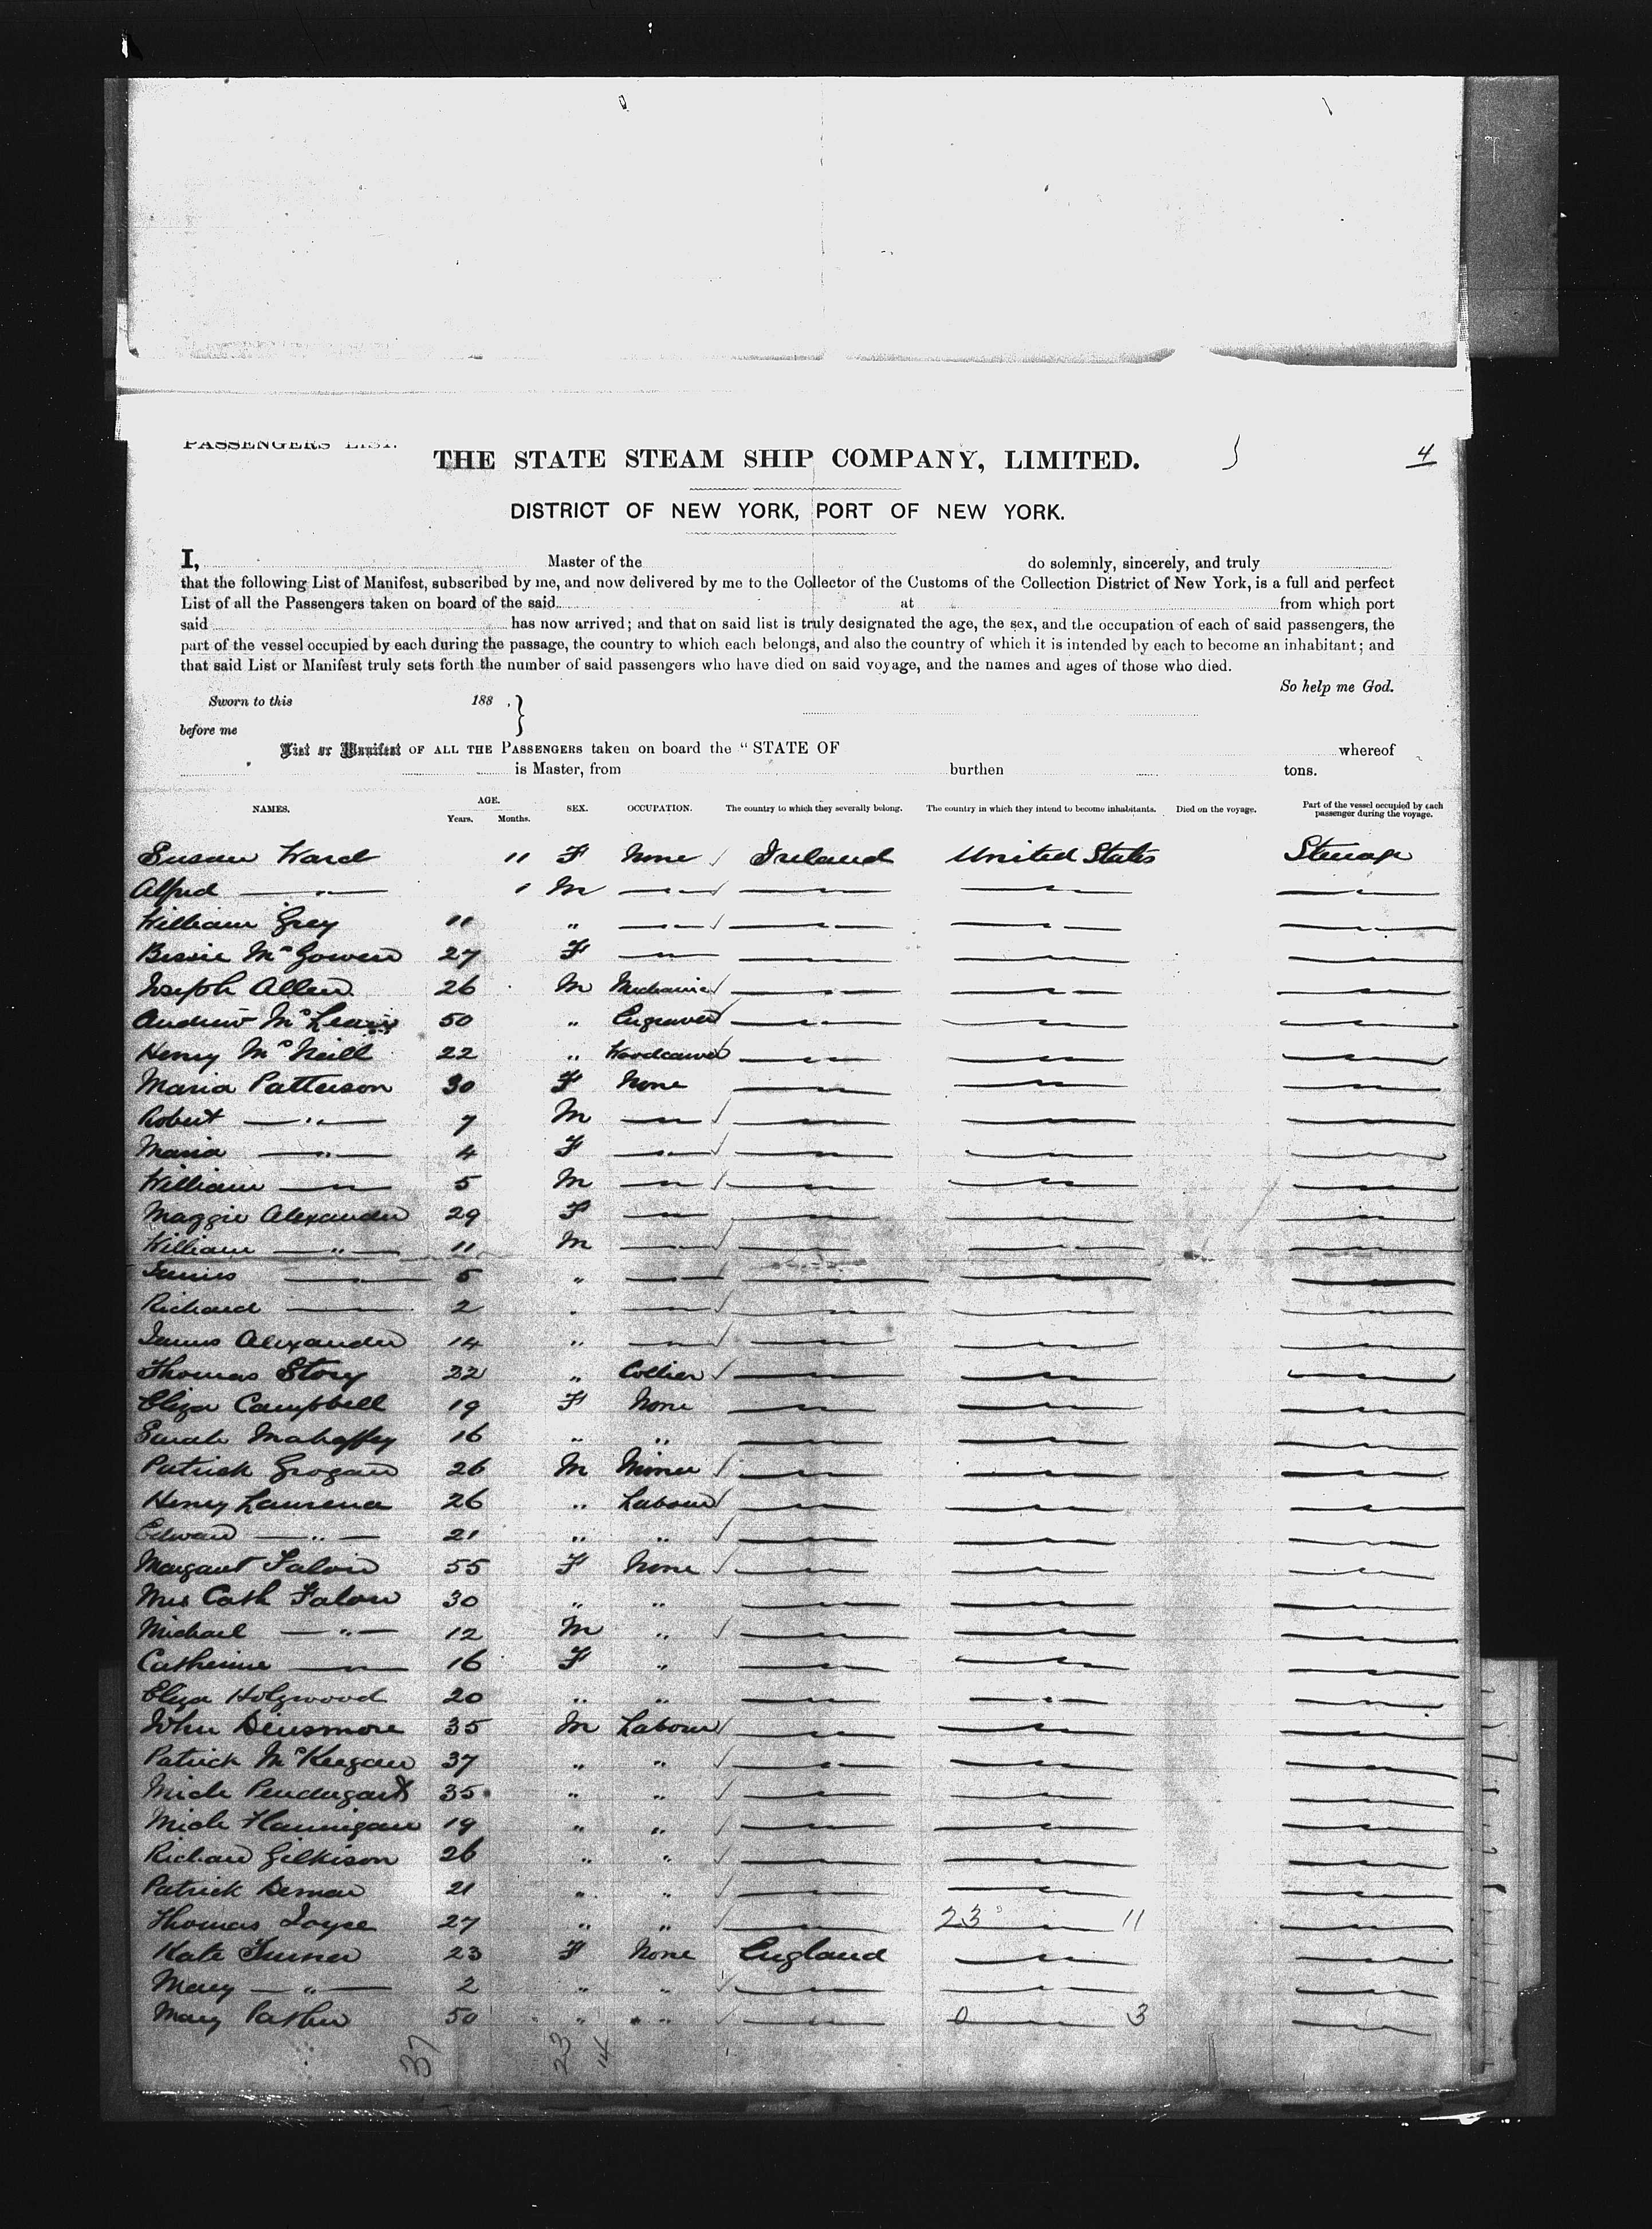 PASSENGERS LIST.
THE STATE STEAM SHIP COMPANY, LIMITED.
4
DISTRICT OF NEW YORK, PORT OF NEW YORK.
I, Master of the do solemnly, sincerely, and truly
that the following List of Manifest, subscribed by me, and now delivered by me to the Collector of the Customs of the Collection District of New York, is a full and perfect
List of all the Passengers taken on board of the said at from which port
said has now arrived; and that on said list is truly designated the age, the sex, and the occupation of each of said passengers, the
part of the vessel occupied by each during the passage, the country to which each belongs, and also the country of which it is intended by each to become an inhabitant; and
that said List or Manifest truly sets forth the number of said passengers who have died on said voyage, and the names and ages of those who died.
So help me God.
Sworn to this 188 .
before me
List or Manifest OF ALL THE PASSENGERS taken on board the "STATE OF whereof
is Master, from burthen tons.
NAMES. AGE. Years. Months. SEX. OCCUPATION. The country to which they severally belong. The country in which they intend to become inhabitants. Died on the voyage. Part of the vessel occupied by each passenger during the voyage.
Susan Ward 11 F None Ireland United States Steerage
Alfred — " — 1 M
William Grey 11 "
Bessie McGowen 27 F
Joseph Allen 26 M Mechanic
Andrew McLeary 50 " Engraver
Henry McNeill 22 " Woodcarver
Maria Patterson 30 F None
Robert — " — 7 M
Maria — " — 4 F
William — " — 5 M
Maggie Alexander 29 F
William — " — 11 M
James — " — 5 "
Richard — " — 2 "
James Alexander 14 "
Thomas Story 22 " Collier
Eliza Campbell 19 F None
Sarah Mahaffey 16 " "
Patrick Grogan 26 M Miner
Henry Laurence 26 " Labourer
Edward — " — 21 " "
Margaret Falon 55 F None
Mrs Cath Falon 30 " "
Michael — " — 12 M "
Catherine — " — 16 F "
Eliza Holywood 20 " "
John Dinsmore 35 M Labourer
Patrick McKeegan 37 " "
Mich Pendergast 35 " "
Mich Flannigan 19 " "
Richard Gilkison 26 " "
Patrick 21 " "
Thomas Joyce 27 " " 23 11
Kate Turner 23 F None England
Mary — " — 2 " "
Mary 50 " " 0 3
37 23 14